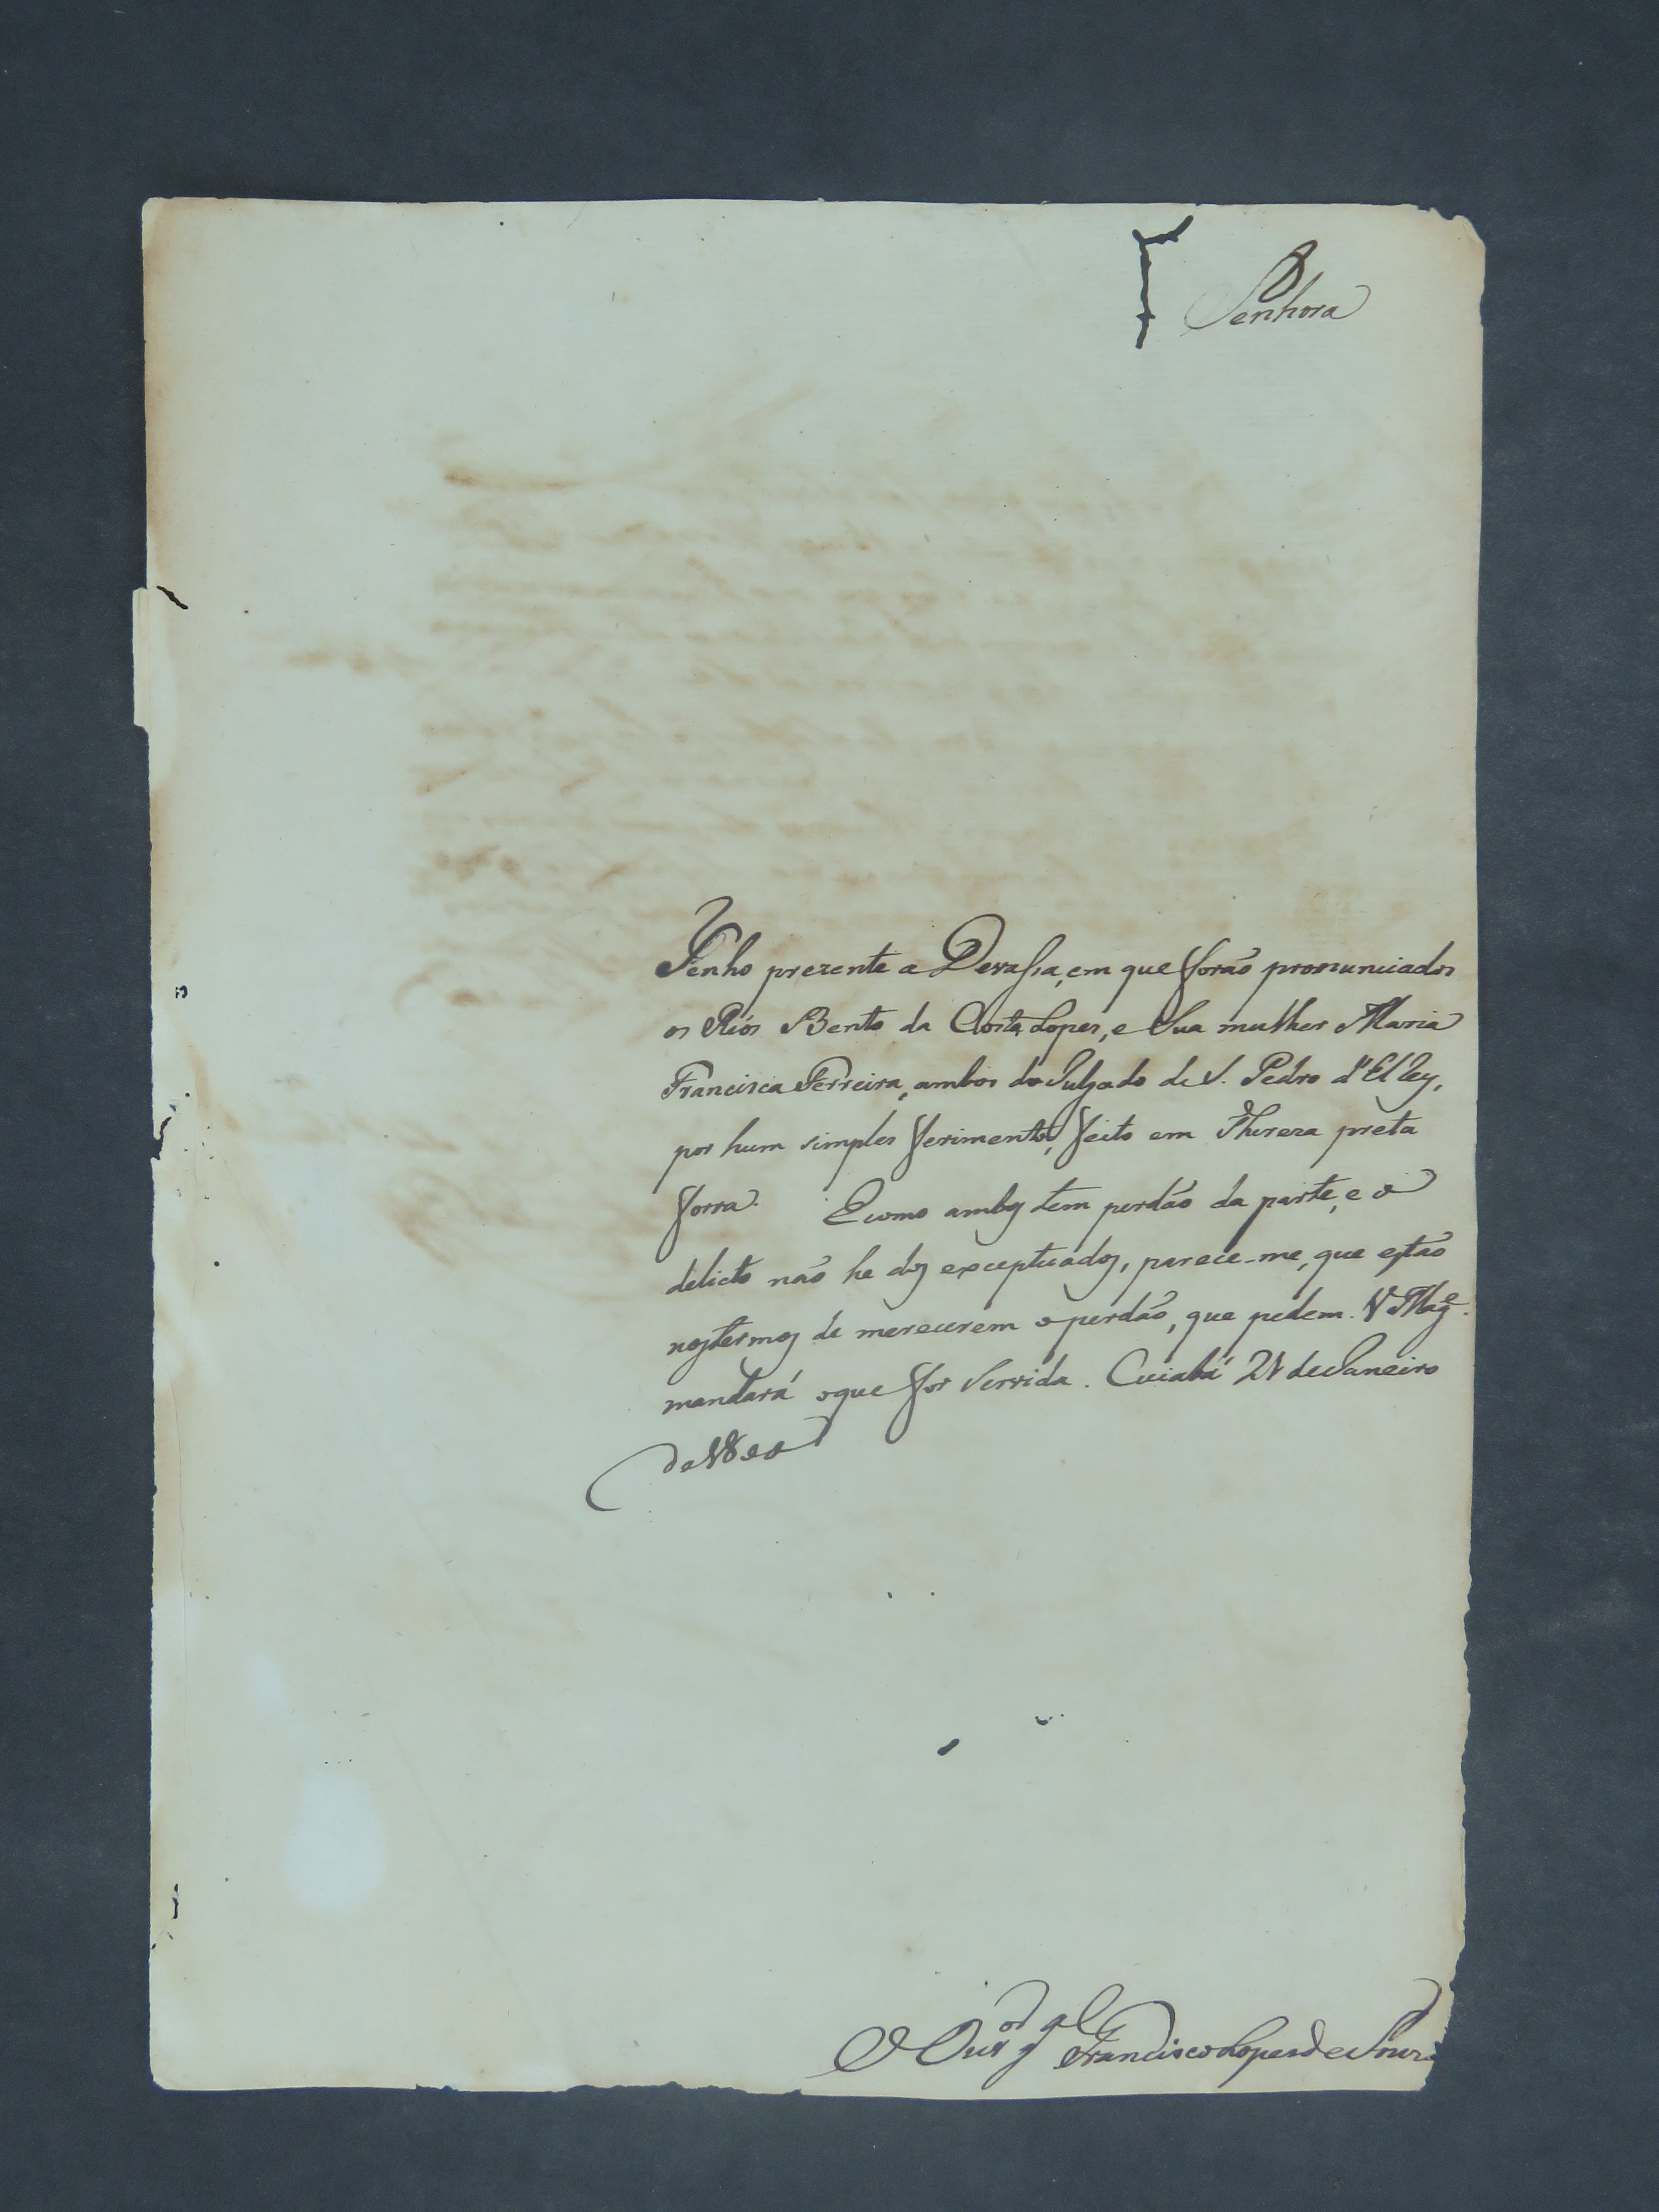 Senhora
Tenho prezente a Devassa, em que forão pronunciados
os Réos Bento da Costa Lopes, e Sua mulher Maria
Francisca Ferreira, ambos do Julgado de S. Pedro d'El Rey,
por hum simples ferimento, feito em Thereza preta
forra. E como ambos tem perdão da parte, e o
delicto não he dos exceptuados, parece-me, que estão
nos termos de merecerem o perdão, que pedem. V Mag.e
mandará o que for Servida. Cuiabá 21 de Janeiro
de 1800
O Ouv.or g.al Francisco Lopes de Souza